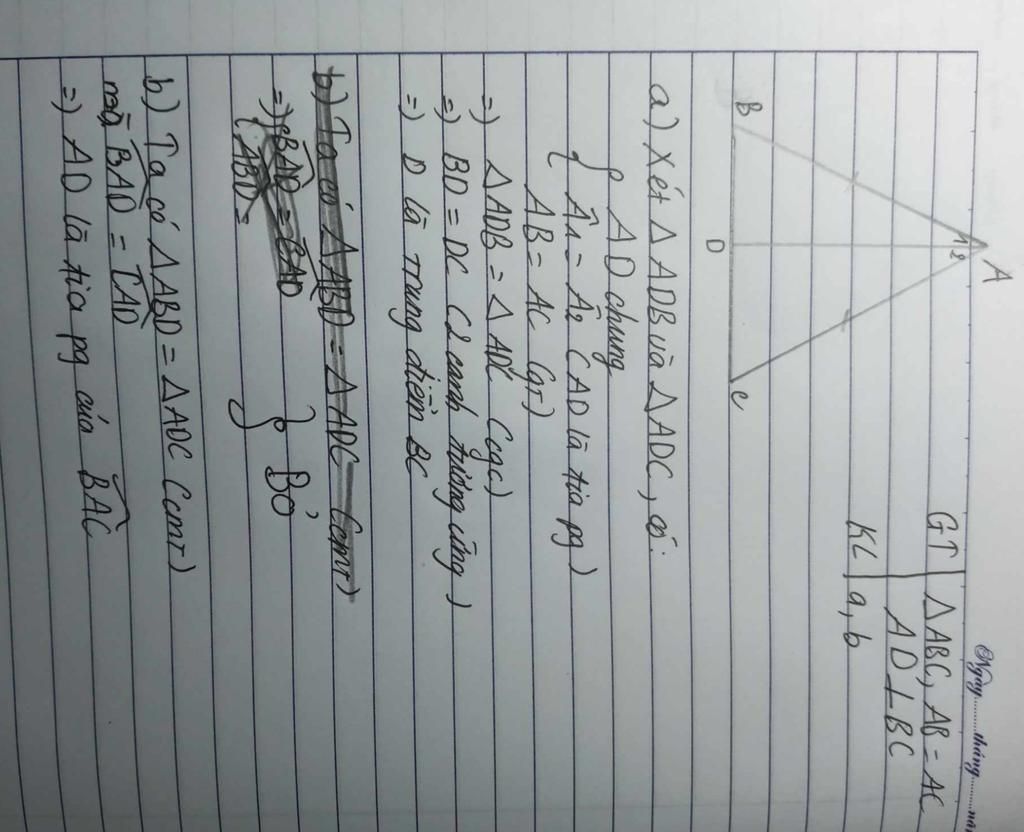 Ngày.........tháng.........nă
GT | ΔABC, AB = AC
AD ⊥ BC
KL | a, b
A
1 2
B
D
C
a) Xét Δ ADB và Δ ADC, có:
{ AD chung
Â1 = Â2 CAD là tia pg)
AB = AC Cgt)
=) ΔADB = Δ ADC Ccgc)
=) BD = DC C2 cạnh tương ứng)
=) D là trung điểm BC
b) Ta có ΔABD = Δ ADC Ccmt)
=) BAD = CAD
ABD =
} Bỏ
b) Ta có ΔABD = ΔADC Ccmt)
BAD = CAD
=) AD là tia pg của BAC